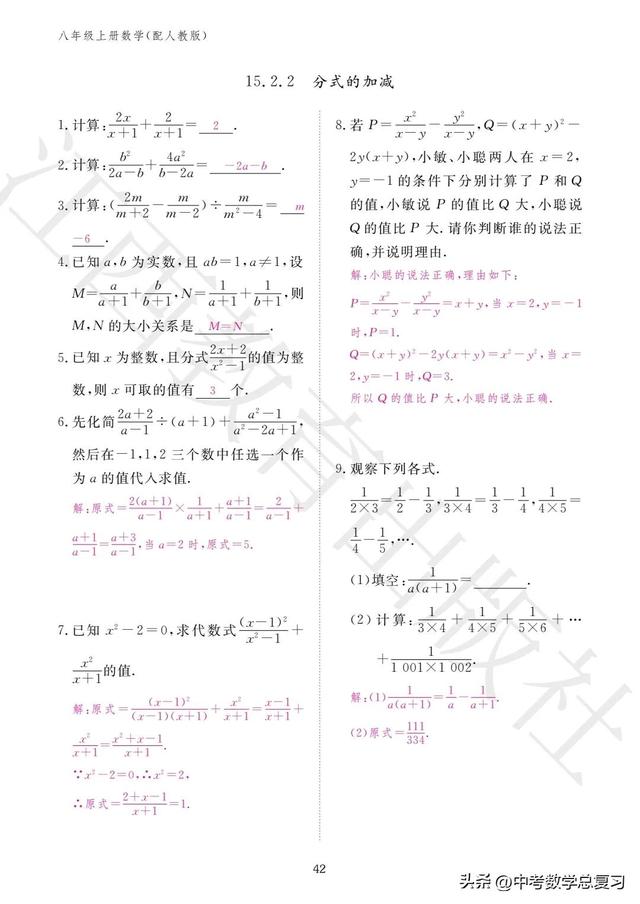 八年级上册数学(配人教版)
15.2.2 分式的加减
1.计算:2x/(x+1)+2/(x+1)=2.
2.计算:b²/(2a-b)+4a²/(b-2a)=-2a-b.
3.计算:(2m/(m+2)-m/(m-2))÷m/(m²-4)=m
-6.
4.已知a,b为实数,且ab=1,a≠1,设
M=a/(a+1)+b/(b+1),N=1/(a+1)+1/(b+1),则
M,N的大小关系是M=N.
5.已知x为整数,且分式(2x+2)/(x²-1)的值为整
数,则x可取的值有3个.
6.先化简(2a+2)/(a-1)÷(a+1)+(a²-1)/(a²-2a+1),
然后在-1,1,2三个数中任选一个作
为a的值代入求值.
解:原式=2(a+1)/(a-1)×1/(a+1)+(a+1)/(a-1)=2/(a-1)+
(a+1)/(a-1)=(a+3)/(a-1),当a=2时,原式=5.
7.已知x²-2=0,求代数式(x-1)²/(x²-1)+
x²/(x+1)的值.
解:原式=(x-1)²/((x-1)(x+1))+x²/(x+1)=(x-1)/(x+1)+
x²/(x+1)=(x²+x-1)/(x+1).
∵x²-2=0,∴x²=2,
∴原式=(2+x-1)/(x+1)=1.
8.若P=x²/(x-y)-y²/(x-y),Q=(x+y)²-
2y(x+y),小敏、小聪两人在x=2,
y=-1的条件下分别计算了P和Q
的值,小敏说P的值比Q大,小聪说
Q的值比P大.请你判断谁的说法正
确,并说明理由.
解:小聪的说法正确,理由如下:
P=x²/(x-y)-y²/(x-y)=x+y,当x=2,y=-1
时,P=1.
Q=(x+y)²-2y(x+y)=x²-y²,当x=
2,y=-1时,Q=3.
所以Q的值比P大,小聪的说法正确.
9.观察下列各式.
1/(2×3)=1/2-1/3,1/(3×4)=1/3-1/4,1/(4×5)=
1/4-1/5,….
(1)填空:1/(a(a+1))=____.
(2)计算:1/(3×4)+1/(4×5)+1/(5×6)+…
+1/(1 001×1 002).
解:(1)1/(a(a+1))=1/a-1/(a+1).
(2)原式=111/334.
42
江西教育出版社
头条 @中考数学总复习